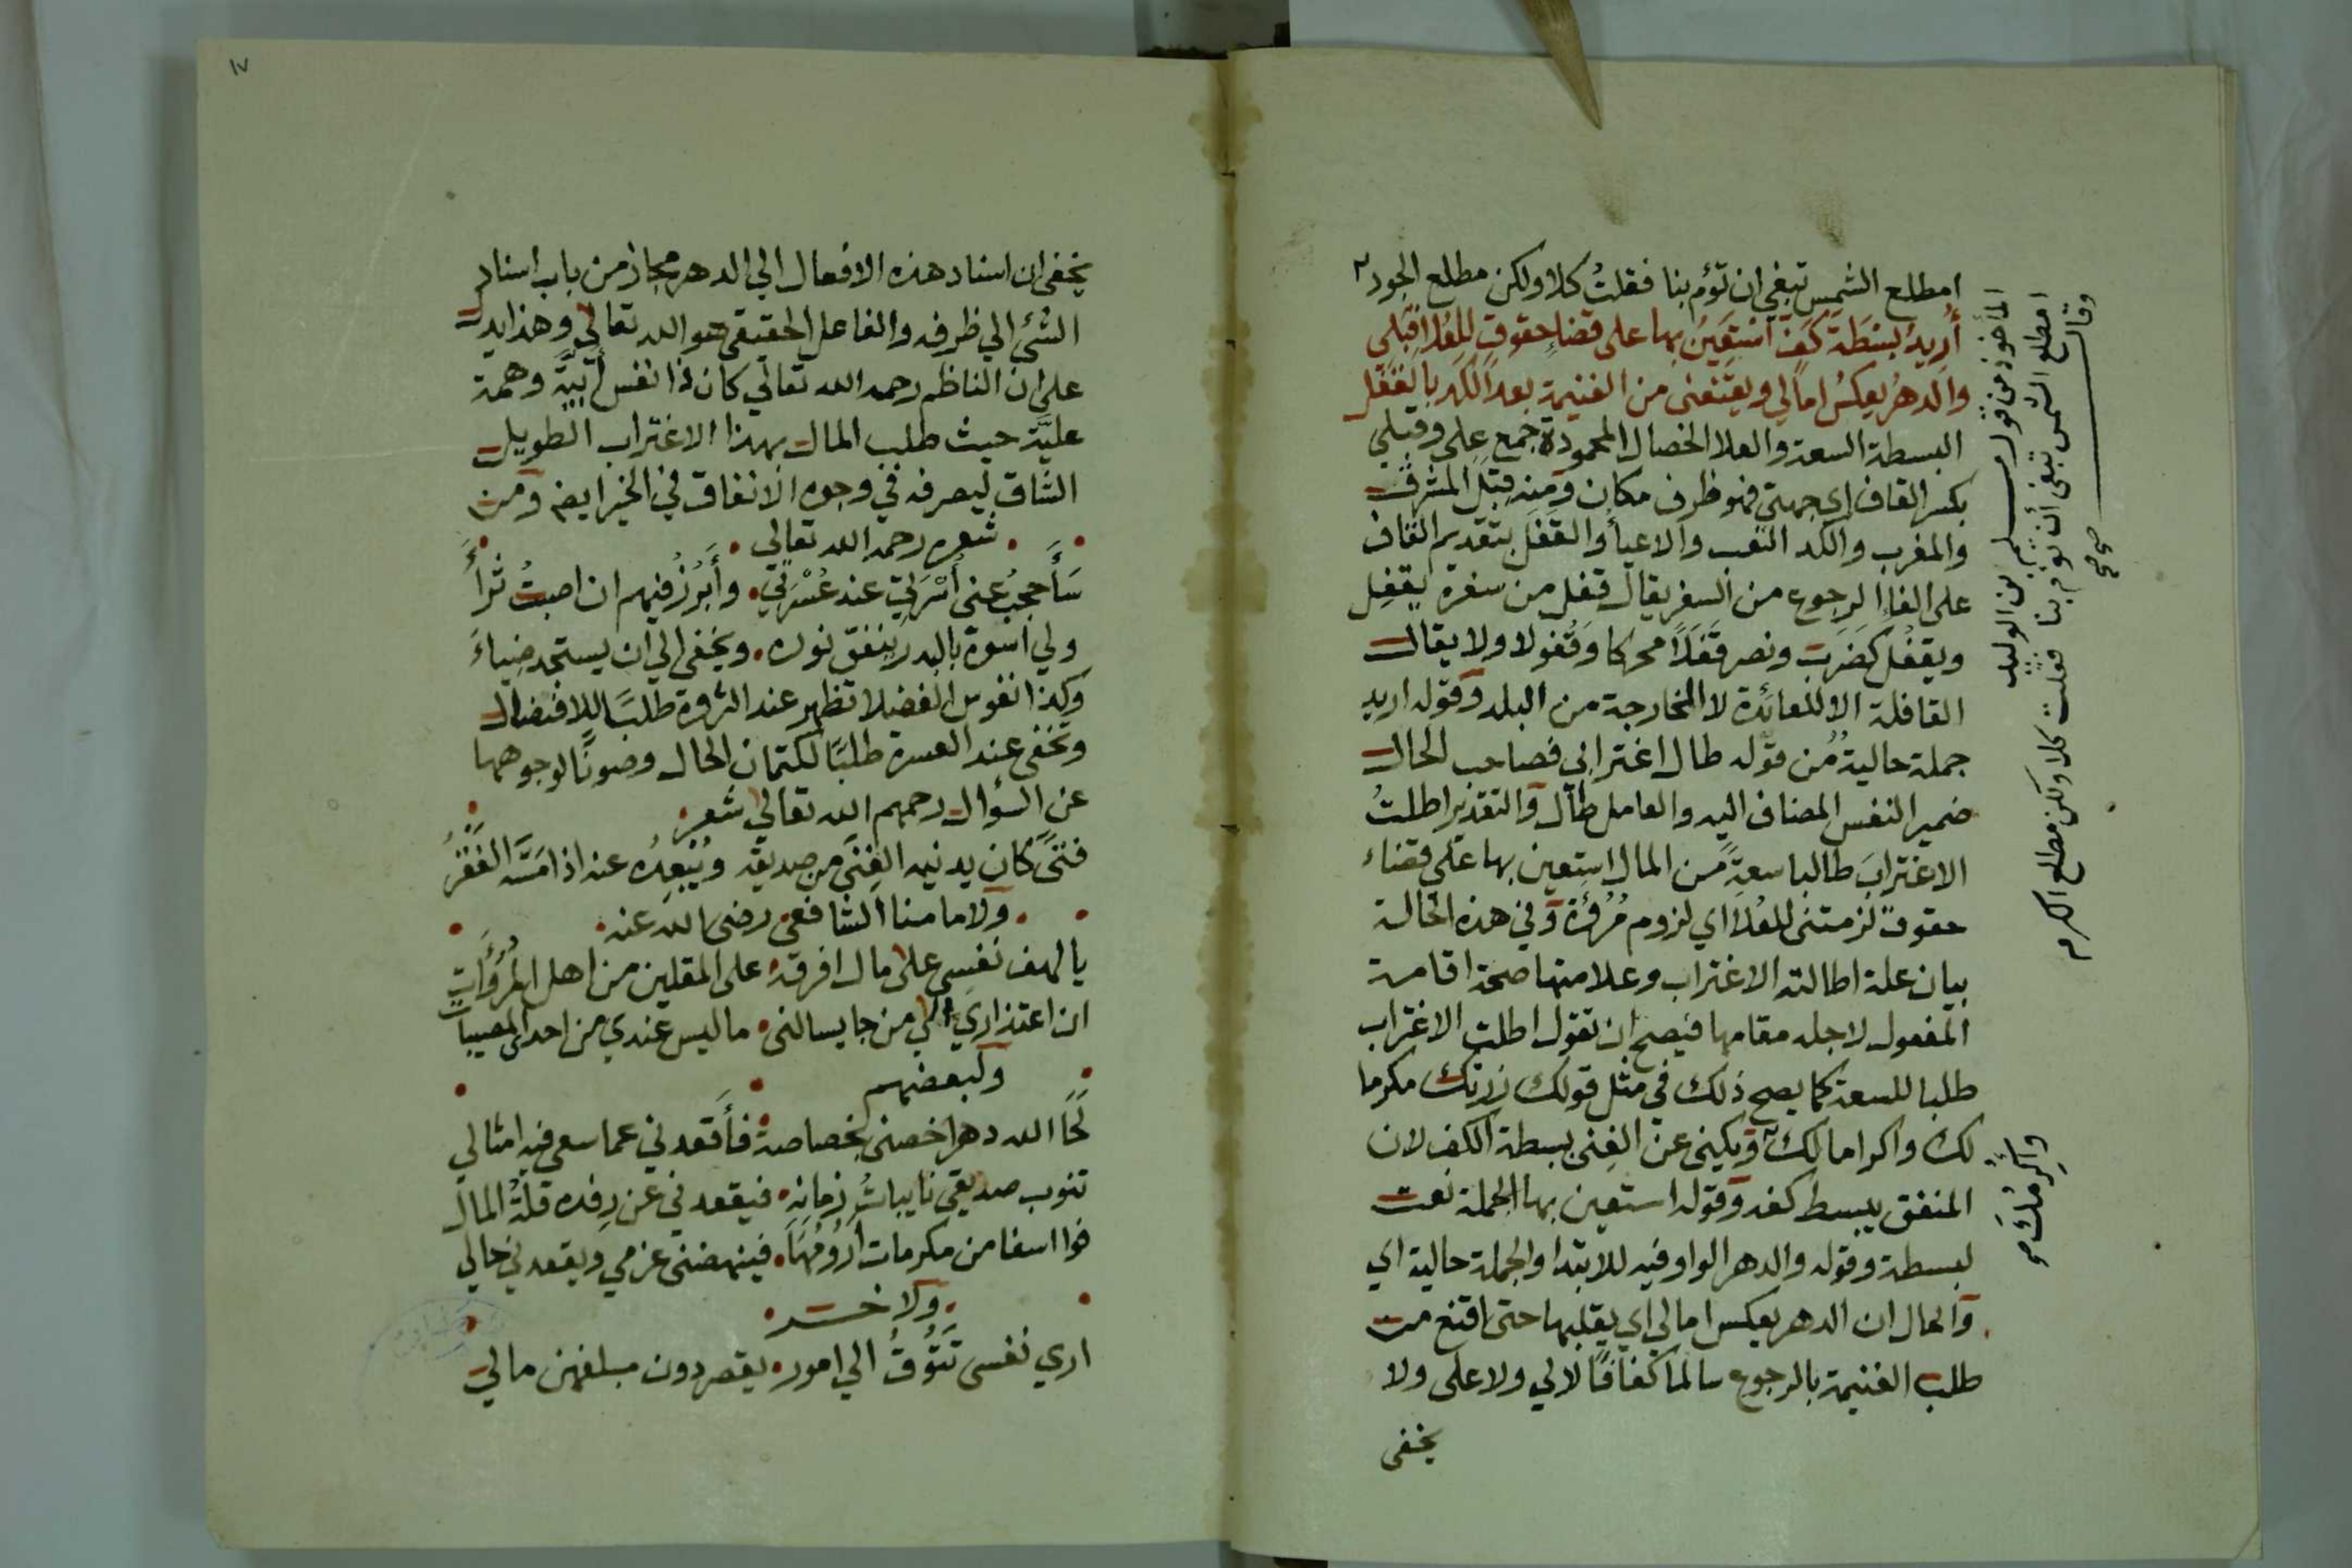 امطلع الشمس تبغي ان تؤم بنا فقلتُ كلا ولكن مطلع الجود
أُرِيدُ بَسْطَةَ كَفٍّ اَسْتَعِيْنُ بِها على قضاءِ حقوقٍ لِلعُلا قِبَلي
والدهرُ يعكسُ امالي ويقنعني من الغنيمة بعد الكد بالقفَل
البسطة السعة والعلا الخصال المحمودة جمع على وقبلي
بكسر القاف اي جهتي فهو ظرف مكان ومنه قِبَل المشرق
والمغرب والكد التعب والاعيأ والقفل بتقديم القاف
على الفاء الرجوع من السفر يقال قفل من سفره يقفِل
ويقفُل كضَرَب ونصر قفَلاً محركا وَقُفولا ولا يقال
القافلة الا للعائدة لا الخارجة من البلد وقوله اريد
جملة حالية من قوله طال اغترابي فصاحب الحال
ضمير النفس المضاف اليه والعامل طال والتقدير اطلتُ
الاغترابَ طالبا سعةً من المال استعين بها على قضاء
حقوق لزمتني للعُلا اي لزوم مُرُؤَة وفي هذه الحالة
بيان علة اطالته الاغتراب وعلامتها صحة اقامة
المفعول لاجله مقامها فيصح ان تقول اطلت الاغتراب
طلبا للسعة كما يصح ذلك في مثل قولك زرتك مكرما
لك واكراما لك ويكنى عن الغِنى ببسطة الكف لان
المنفق يبسط كفه وقوله استعين بها الجملة نعت
لبسطة وقوله والدهر الواو فيه للابتدا والجملة حالية اي
والحال ان الدهر يعكس امالي اي يقلبها حتى اقنع من
طلب الغنيمة بالرجوع سالما كفافًا لا لي ولا على ولا
يخفى
المأخوذ من قول مسلم بن الوليد
امطلع الشمس تبغي أن تؤم بنا فقلت كلا ولكن مطلع الكرم
وقال
صح صح
واكرمُكَ صح
١٧
يخفى ان اسناد هذه الافعال الي الدهر مجاز من باب اسناد
الشئ الي ظرفه والفاعل الحقيقي هو الله تعالي وهذا يدل
على ان الناظم رحمه الله تعالي كان ذا نفس أَبيَّة وهمة
عليَّة حيث طلب المال بهذا الاغتراب الطويل
الشاق ليصرفه في وجوه الانفاق في الخير ايضا ومن
شعره رحمه الله تعالي
سَأَحجبُ عني أُسْرَتي عند عُسْرَتي وأَبْرُزُ فيهم ان اصبتُ ثراءً
ولي اسوة بالبدر يُنفق نوره ويخفى الي ان يستجد ضِياءَ
وكذا نفوس الفضلا تظهر عند الثروة طلبًا للافضال
وتخفى عند العسرة طلبًا لكتمان الحال وصونًا لوجوههما
عن السؤال رحمهم الله تعالي شعر
فتىً كان يدنيه الغِنَى من صديقه ويُبْعِدُه عنه اذا مَسَّه الفَقْرُ
ولامامنا الشافعي رضي الله عنه
يا لهف نفسي على مال افرقه على المقلين من اهل المُرُؤَاتِ
ان اعتذاري الي من جا يسالني ما ليس عندي من احدى المصيبات
ولبعضهم
لَحَا الله دهرا خصني بخصاصة فأَقعدني عما سعي فيه امثالي
تنوب صديقي نايباتُ زمانه فيقعدني عن رِفده قلةُ المال
فوا اسفا من مكرمات أَرُوْمُهَا فينهضني عزمي ويقعدني حالي
ولاخر
اري نفسي تَتُوْقُ الي امور يقصر دون مبلغهن مالي